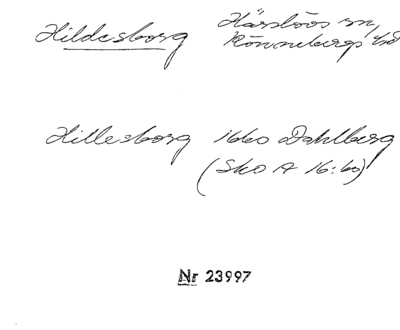 Hildesborg Härslövs sn,
Rönnebergs hd
Hillesborg 1660 Dahlberg
(Sko A 16:60)
Nr 23997